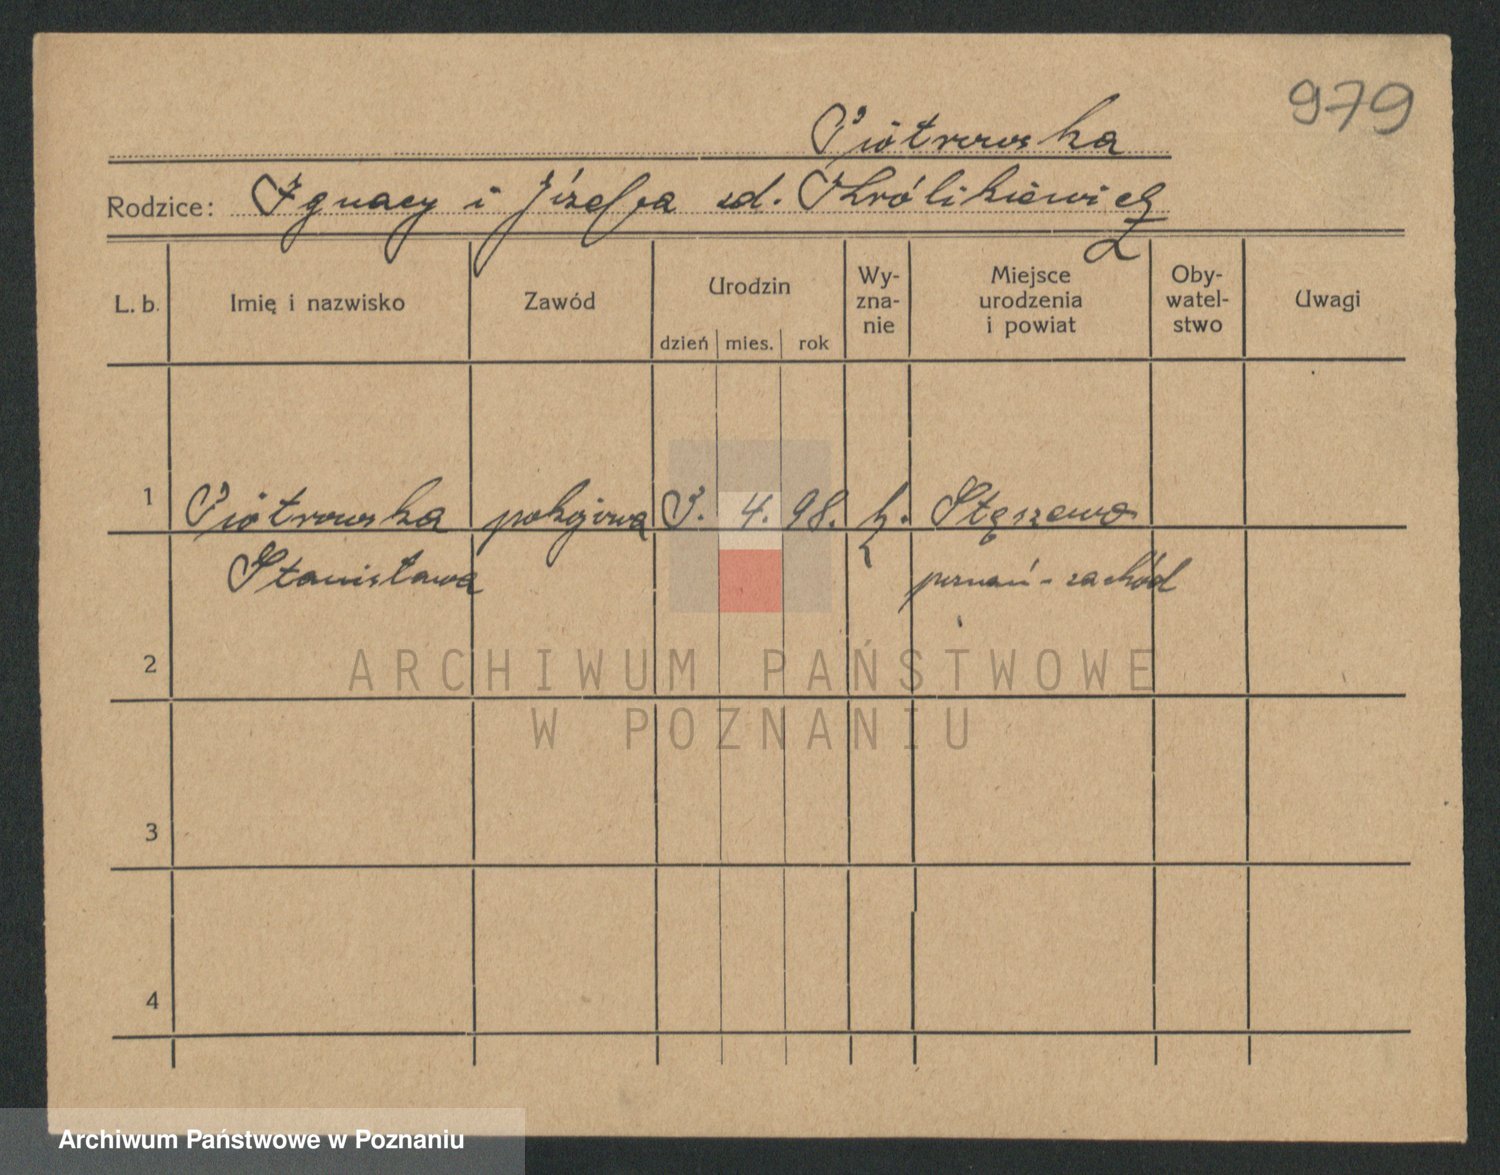 979
Piotrowska
Rodzice: Ignacy i Józefa zd. Królikiewicz
L. b. Imię i nazwisko Zawód Urodzin dzień mies. rok Wy-zna-nie Miejsce urodzenia i powiat Oby-watel-stwo Uwagi
1 Piotrowska pokojowa 4. 98. k. Stęszewo
Stanisława poznań - zachód
2
ARCHIWUM PAŃSTWOWE
W POZNANIU
3
4
Archiwum Państwowe w Poznaniu